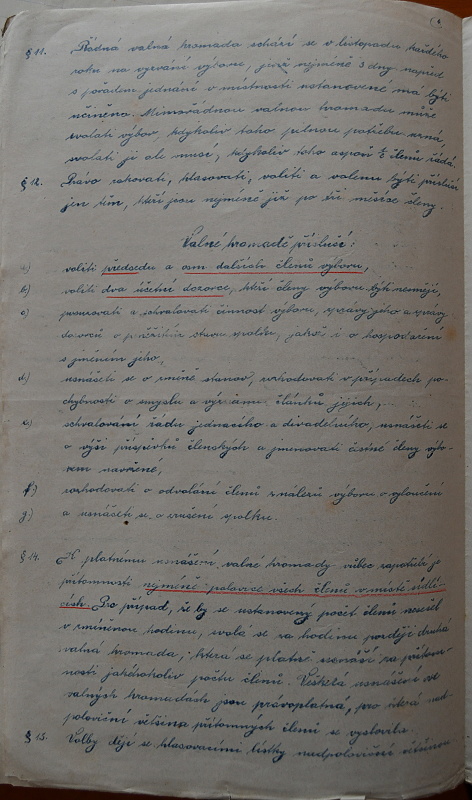 § 11. Řádná valná hromada schází se v listopadu každého
roku na vyzvání výboru, jenž nejméně 3 dny napřed
s pořadem jednání v místnosti ustanovené má býti
učiněno. Mimořádnou valnou hromadu může
svolati výbor, kdykoliv toho potřebu uzná,
svolati ji ale musí, kdykoliv toho aspoň členů žádá.
§ 12. Právo rokovati, hlasovati, voliti a volenu býti přísluší
jen těm, kteří jsou nejméně již po tři měsíce členy.
Valné hromadě přísluší:
a) voliti předsedu a osm dalších členů výboru,
b) voliti dva účetní dozorce, kteří členy výboru býti nesmějí,
c) posuzovati a schvalovati činnost výboru, zprávy jeho a zprávy
dozorců o peněžitém stavu spolku, jakož i o hospodaření
s jměním jeho,
d) usnášeti se o změně stanov, rozhodovati v případech po-
chybnosti o smyslu a významu článků jejich,
e) schvalování řádu jednacího a divadelního, usnášeti se
o výši příspěvků členských a jmenovati čestné členy výbo-
rem navržené,
f) rozhodovati o odvolání členů z nálezu výboru o vyloučení
g) a usnášeti se o zrušení spolku.
§ 14. K platnému usnášení valné hromady vůbec zapotřebí je
přítomnosti nejméně polovice všech členů v místě sídlí-
cích. Pro případ, že by se ustanovený počet členů nesešel
v zmíněnou hodinu, svolá se za hodinu později druhá
valná hromada, která se platně usnáší za přítom-
nosti jakéhokoliv počtu členů. Veškerá usnášení ve
valných hromadách jsou právoplatna, pro která nad-
poloviční většina přítomných členů se vyslovila.
§ 15. Volby dějí se hlasovacími lístky nadpoloviční většinou